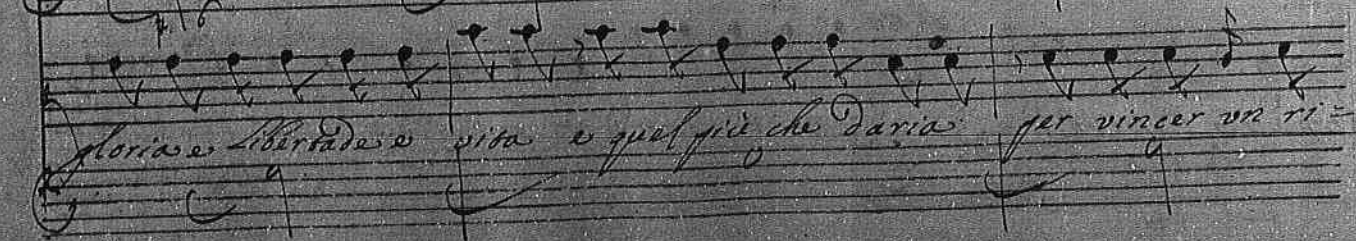 gloria e libertade e vita e quel più che daria per vincer un ri=